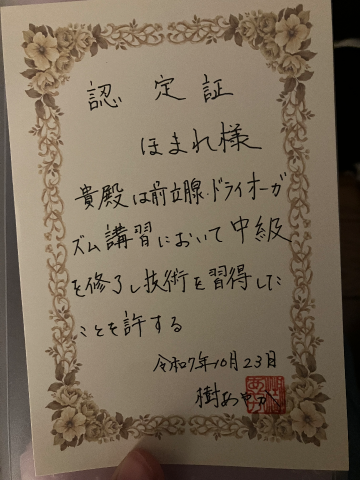 認定証
ほまれ様
貴殿は前立腺・ドライオーガ
ズム講習において中級
を修了し技術を習得した
ことを許する
令和7年10月23日
樹あやか